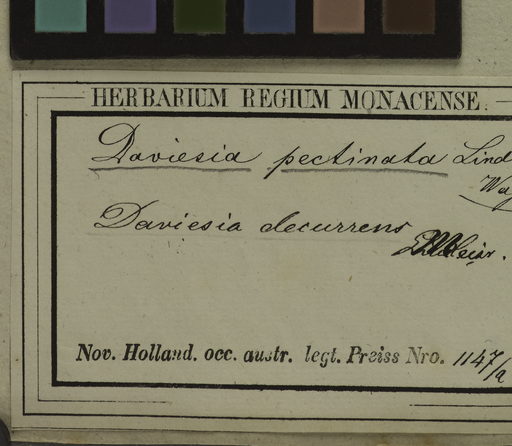 HERBARIUM REGIUM MONACENSE.
Daviesia pectinata Lind
Daviesia decurrens
Meisn.
Nov. Holland. occ. austr. legt. Preiss Nro. 1147/a